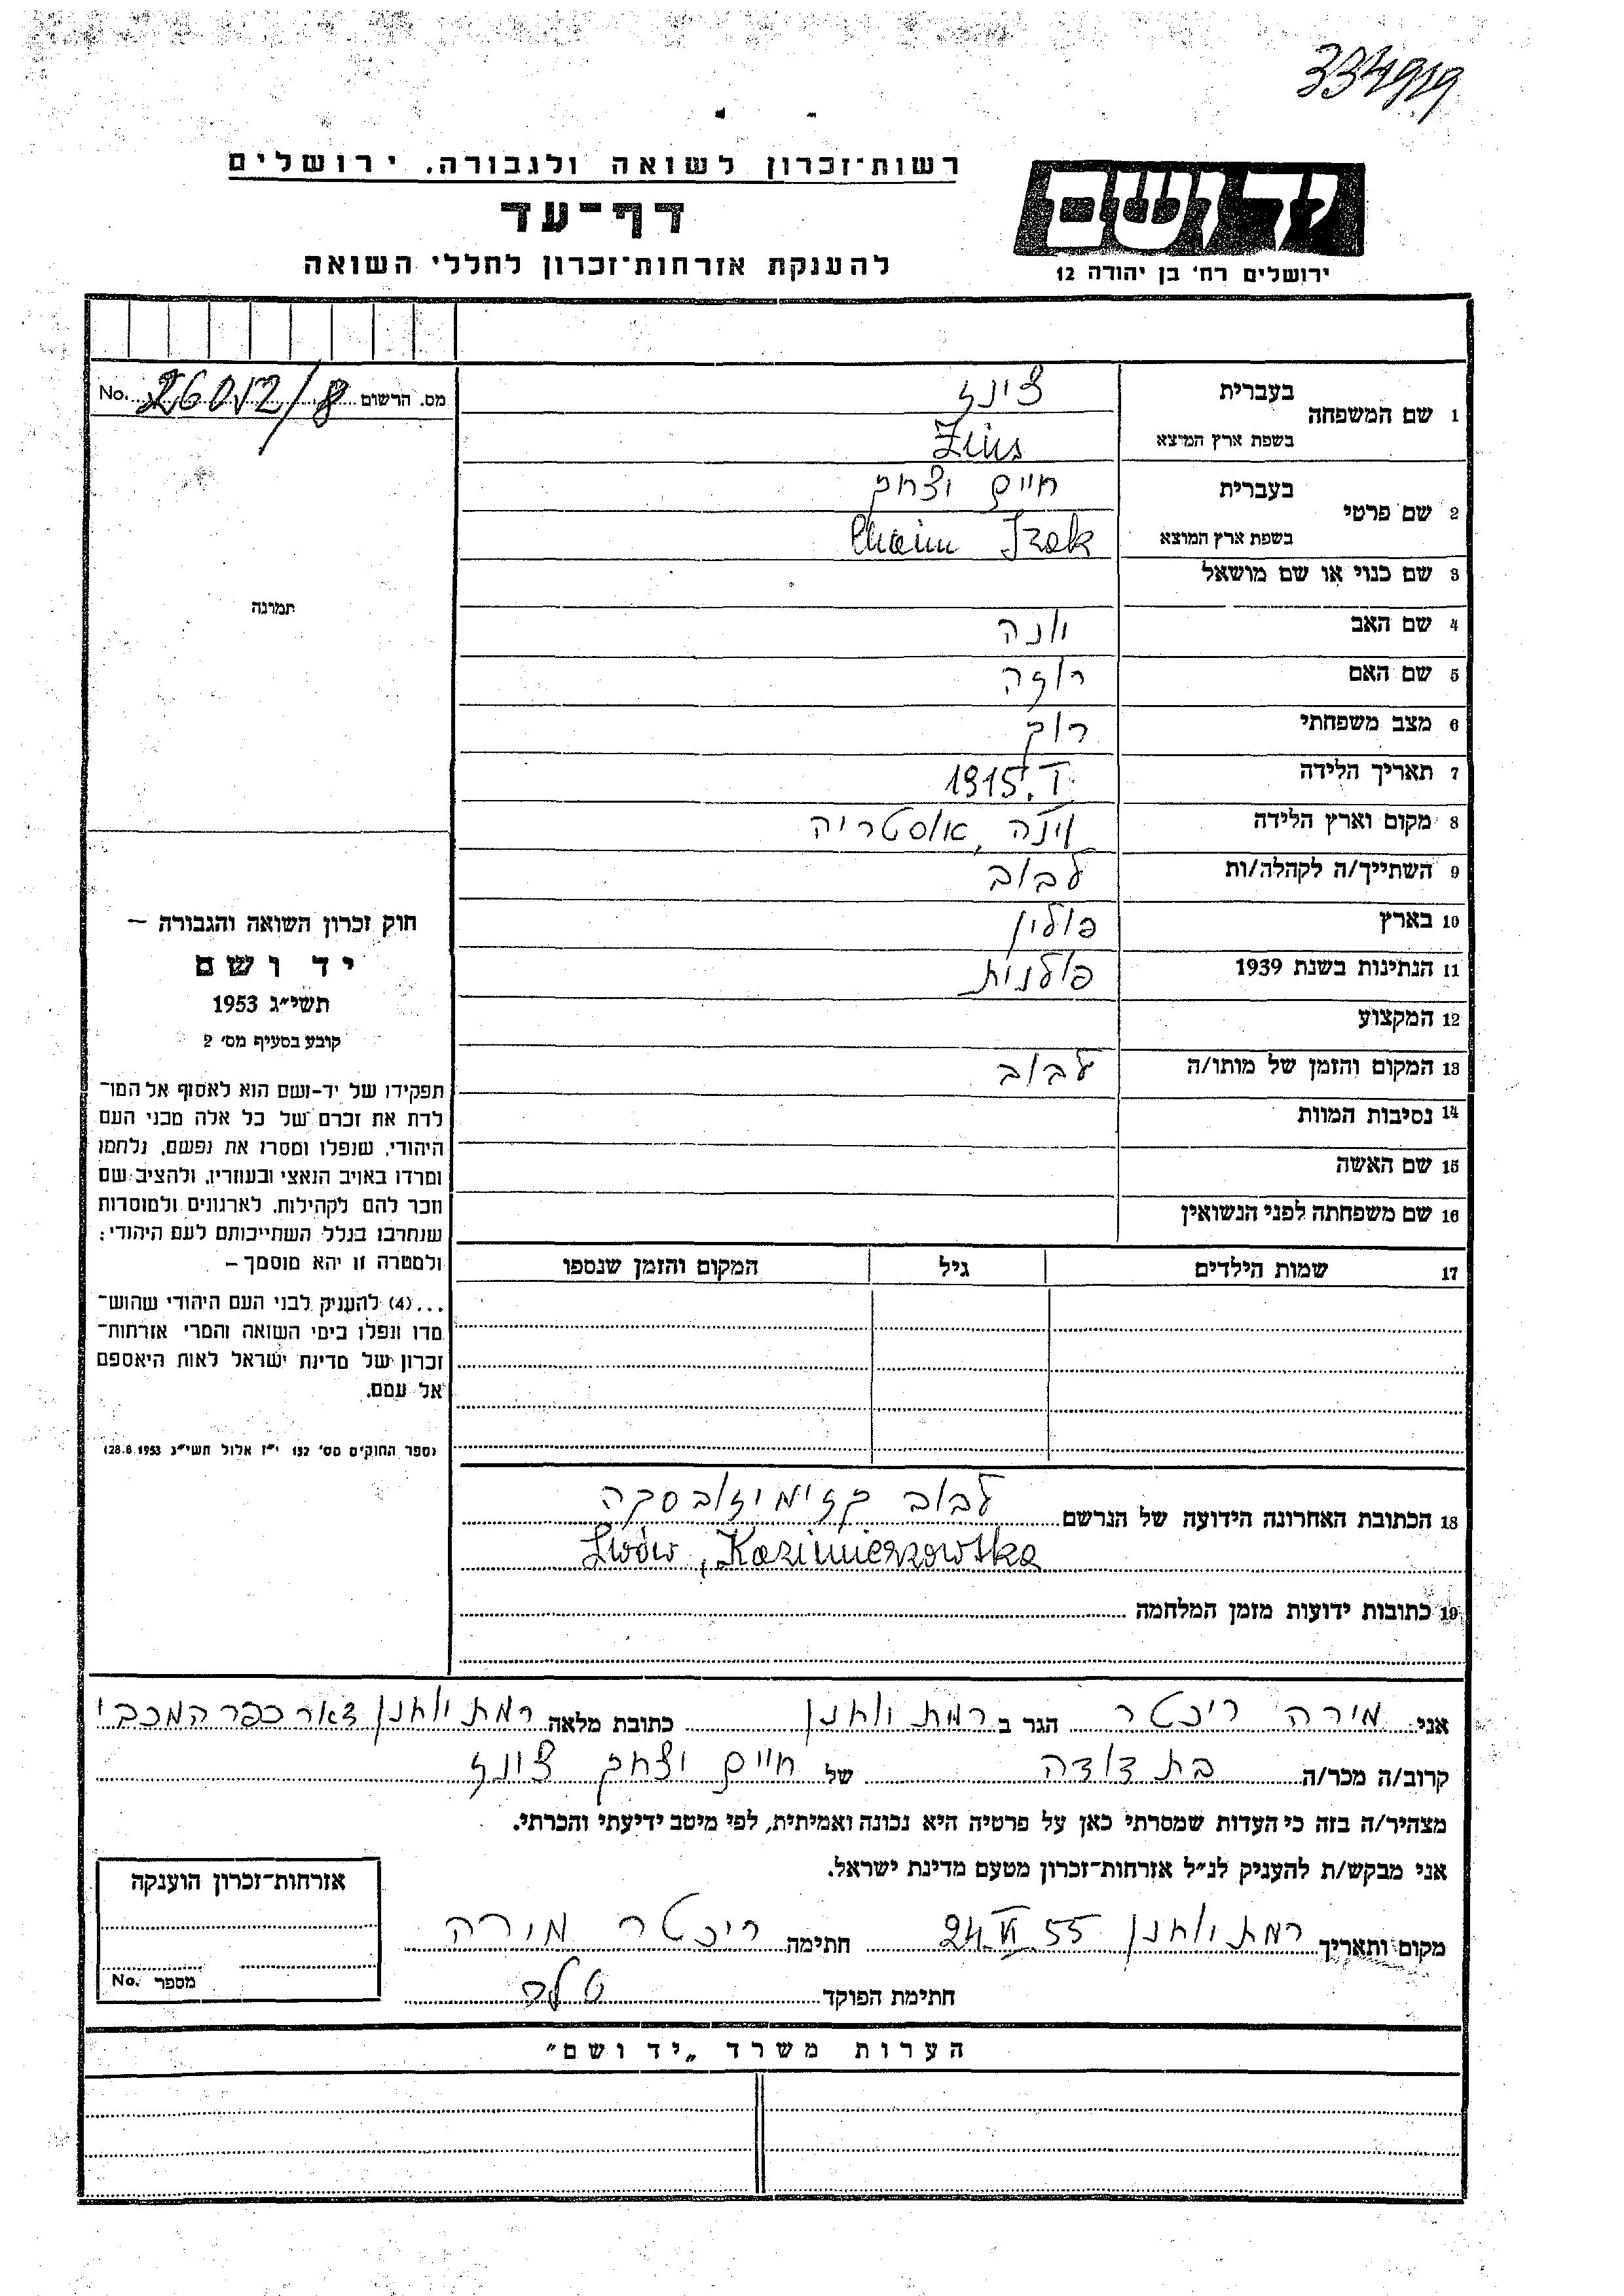 334919
רשות־זכרון לשואה ולגבורה, ירושלים
דף־עד
להענקת אזרחות־זכרון לחללי השואה
יד ושם
ירושלים רח' בן יהודה 12
מס. הרשום 26012/8 No.
1 שם המשפחה
בעברית צינז
בשפת ארץ המוצא
2 שם פרטי
בעברית חיים יצחק
בשפת ארץ המוצא Chaim Izak
3 שם כנוי או שם מושאל
4 שם האב יונה
5 שם האם רוזה
6 מצב משפחתי רוק
7 תאריך הלידה 1915
8 מקום וארץ הלידה וינה, אוסטריה
9 השתייך/ה לקהלה/ות לבוב
10 בארץ פולין
11 הנתינות בשנת 1939 פולנית
12 המקצוע
13 המקום והזמן של מותו/ה לבוב
14 נסיבות המוות
15 שם האשה
16 שם משפחתה לפני הנשואין
17 שמות הילדים גיל המקום והזמן שנספו
תמונה
חוק זכרון השואה והגבורה –
יד ושם
תשי״ג 1953
קובע בסעיף מס' 2
תפקידו של יד-ושם הוא לאסוף אל המו־
לדת את זכרם של כל אלה מבני העם
היהודי, שנפלו ומסרו את נפשם, נלחמו
ומרדו באויב הנאצי ובעוזריו, ולהציב שם
וזכר להם לקהילות, לארגונים ולמוסדות
שנחרבו בגלל השתייכותם לעם היהודי;
ולמטרה זו יהא מוסמך –
...(4) להעניק לבני העם היהודי שהוש־
מדו ונפלו בימי השואה והמרי אזרחות־
זכרון של מדינת ישראל לאות היאספם
אל עמם.
(ספר החוקים מס' 132 י״ז אלול תשי״ג 28.8.1953)
18 הכתובת האחרונה הידועה של הנרשם לבוב קזימיזובסקה
Lwów, Kazimierzowska
19 כתובות ידועות מזמן המלחמה
אני מירה ריכטר הגר ב רמת יוחנן כתובת מלאה רמת יוחנן דאר כפר המכבי
קרוב/ה מכר/ה בת דודה של חיים יצחק צינז
מצהיר/ה בזה כי העדות שמסרתי כאן על פרטיה היא נכונה ואמיתית, לפי מיטב ידיעתי והכרתי.
אני מבקש/ת להעניק לנ״ל אזרחות־זכרון מטעם מדינת ישראל.
מקום ותאריך רמת יוחנן 24.VI 55 חתימה ריכטר מירה
חתימת הפוקד
אזרחות־זכרון הוענקה
מספר No.
הערות משרד „יד ושם״